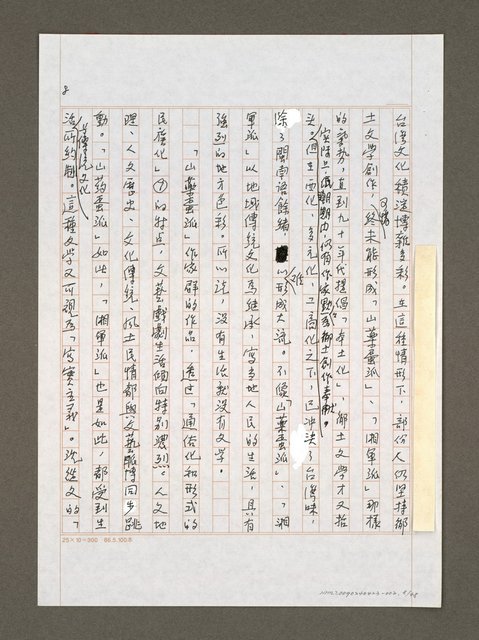 台灣文化積澱博雜多彩。在這種情形下，部份人仍堅持鄉
土文學創作，可惜終未能形成「山藥蛋派」、「湘軍派」那樣
的氣勢，直到九十年代提倡「本土化」，鄉土文學才又抬
頭。但在西化、多元化、工商化之下，已沖淡了台灣味，
實際上，低潮期內，仍有作家默默為鄉土創作奉獻。
除了閩南語餘緒，難以形成大流。不像「山藥蛋派」、「湘
軍派」以地域傳統文化為繼承，寫當地人民的生活，具有
強烈的地方色彩。所以說，沒有生活就沒有文學。
「山藥蛋派」作家群的作品，透過「通俗化和形式的
民族化」⑦的特点，文藝戲劇生活傾向特別濃烈。人文地
理、人文歷史、文化傳統、風土民情都與文藝脈博同步跳
動。「山葯蛋派」如此，「湘軍派」也是如此，都受到生
活、傳統文化所約制。這種文學又可視為「寫實主義」。沈從文的「
8
25×10=300 86.5.100本